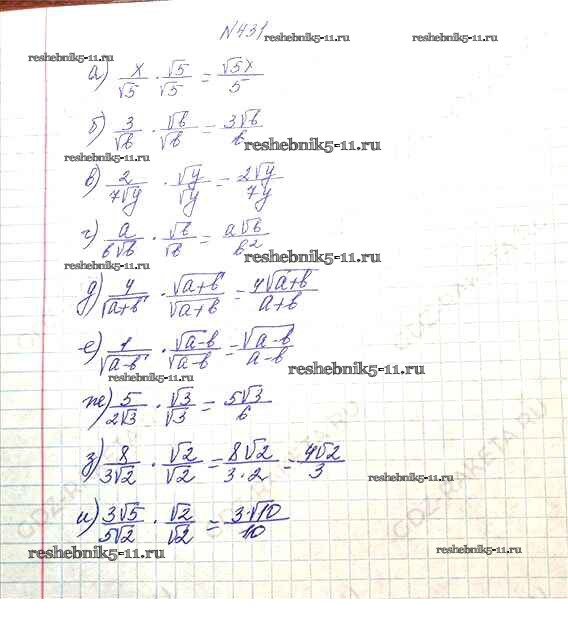 N431
reshebnik5-11.ru reshebnik5-11.ru
reshebnik5-11.ru
а) x/√5 · √5/√5 = √5x/5
б) 3/√b · √b/√b = 3√b/b
reshebnik5-11.ru
reshebnik5-11.ru
в) 2/7√y · √y/√y = 2√y/7y
г) a/b√b · √b/√b = a√b/b²
reshebnik5-11.ru reshebnik5-11.ru
д) 4/√a+b · √a+b/√a+b = 4√a+b/a+b
GDZ-RAKETA.RU
е) 1/√a-b · √a-b/√a-b = √a-b/a-b
reshebnik5-11.ru
reshebnik5-11.ru
ж) 5/2√3 · √3/√3 = 5√3/6
з) 8/3√2 · √2/√2 = 8√2/3·2 = 4√2/3
reshebnik5-11.ru
GDZ-RAKETA.RU
GDZ-RAKETA.RU
и) 3√5/5√2 · √2/√2 = 3·√10/10
reshebnik5-11.ru reshebnik5-11.ru